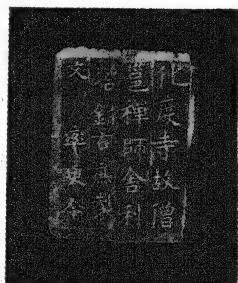 化度寺故僧
邕禪師舍利
塔銘百藥製
文 率更令